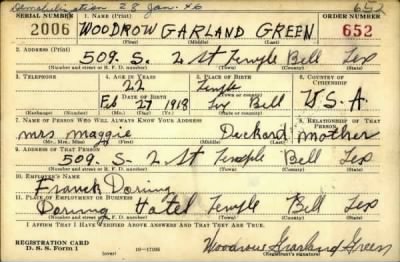 Demobilization 28 Jan. 46 652
SERIAL NUMBER 1. NAME (Print) ORDER NUMBER
2006 WOODROW GARLAND GREEN 652
(First) (Middle) (Last)
2. ADDRESS (Print)
509. S- 2 St Temple Bell Tex
(Number and street or R. F. D. number) (Town) (County) (State)
3. TELEPHONE 4. AGE IN YEARS 5. PLACE OF BIRTH 6. COUNTRY OF CITIZENSHIP
22 Temple
DATE OF BIRTH
Feb 27 1918 Tex Bell U.S.A.
(Exchange) (Number) (Mo.) (Day) (Yr.) (Town or county) (State or country)
7. NAME OF PERSON WHO WILL ALWAYS KNOW YOUR ADDRESS 8. RELATIONSHIP OF THAT PERSON
mrs maggie Deckard mother
(Mr., Mrs., Miss) (First) (Middle) (Last)
9. ADDRESS OF THAT PERSON
509. S- 2 St Temple Bell Tex
(Number and street or R. F. D. number) (Town) (County) (State)
10. EMPLOYER'S NAME
Franck Doring
11. PLACE OF EMPLOYMENT OR BUSINESS
Doring Hotel Temple Bell Tex
(Number and street or R. F. D. number) (Town) (County) (State)
I AFFIRM THAT I HAVE VERIFIED ABOVE ANSWERS AND THAT THEY ARE TRUE.
REGISTRATION CARD
D. S. S. Form 1 (over) Woodrow Garland Green
(Registrant's signature)